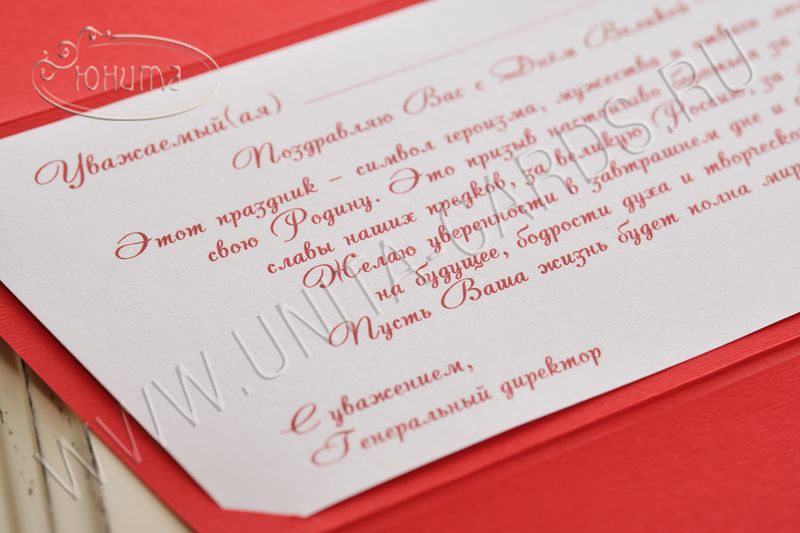 Юнита
Уважаемый(ая)
Поздравляю Вас с Днём Великой
Этот праздник – символ героизма, мужества и отваги
свою Родину. Это призыв настойчиво бороться за
славы наших предков, за великую Россию, за
Желаю уверенности в завтрашнем дне и
на будущее, бодрости духа и творческо
Пусть Ваша жизнь будет полна мир
С уважением,
Генеральный директор
WWW.UNITA-CARDS.RU